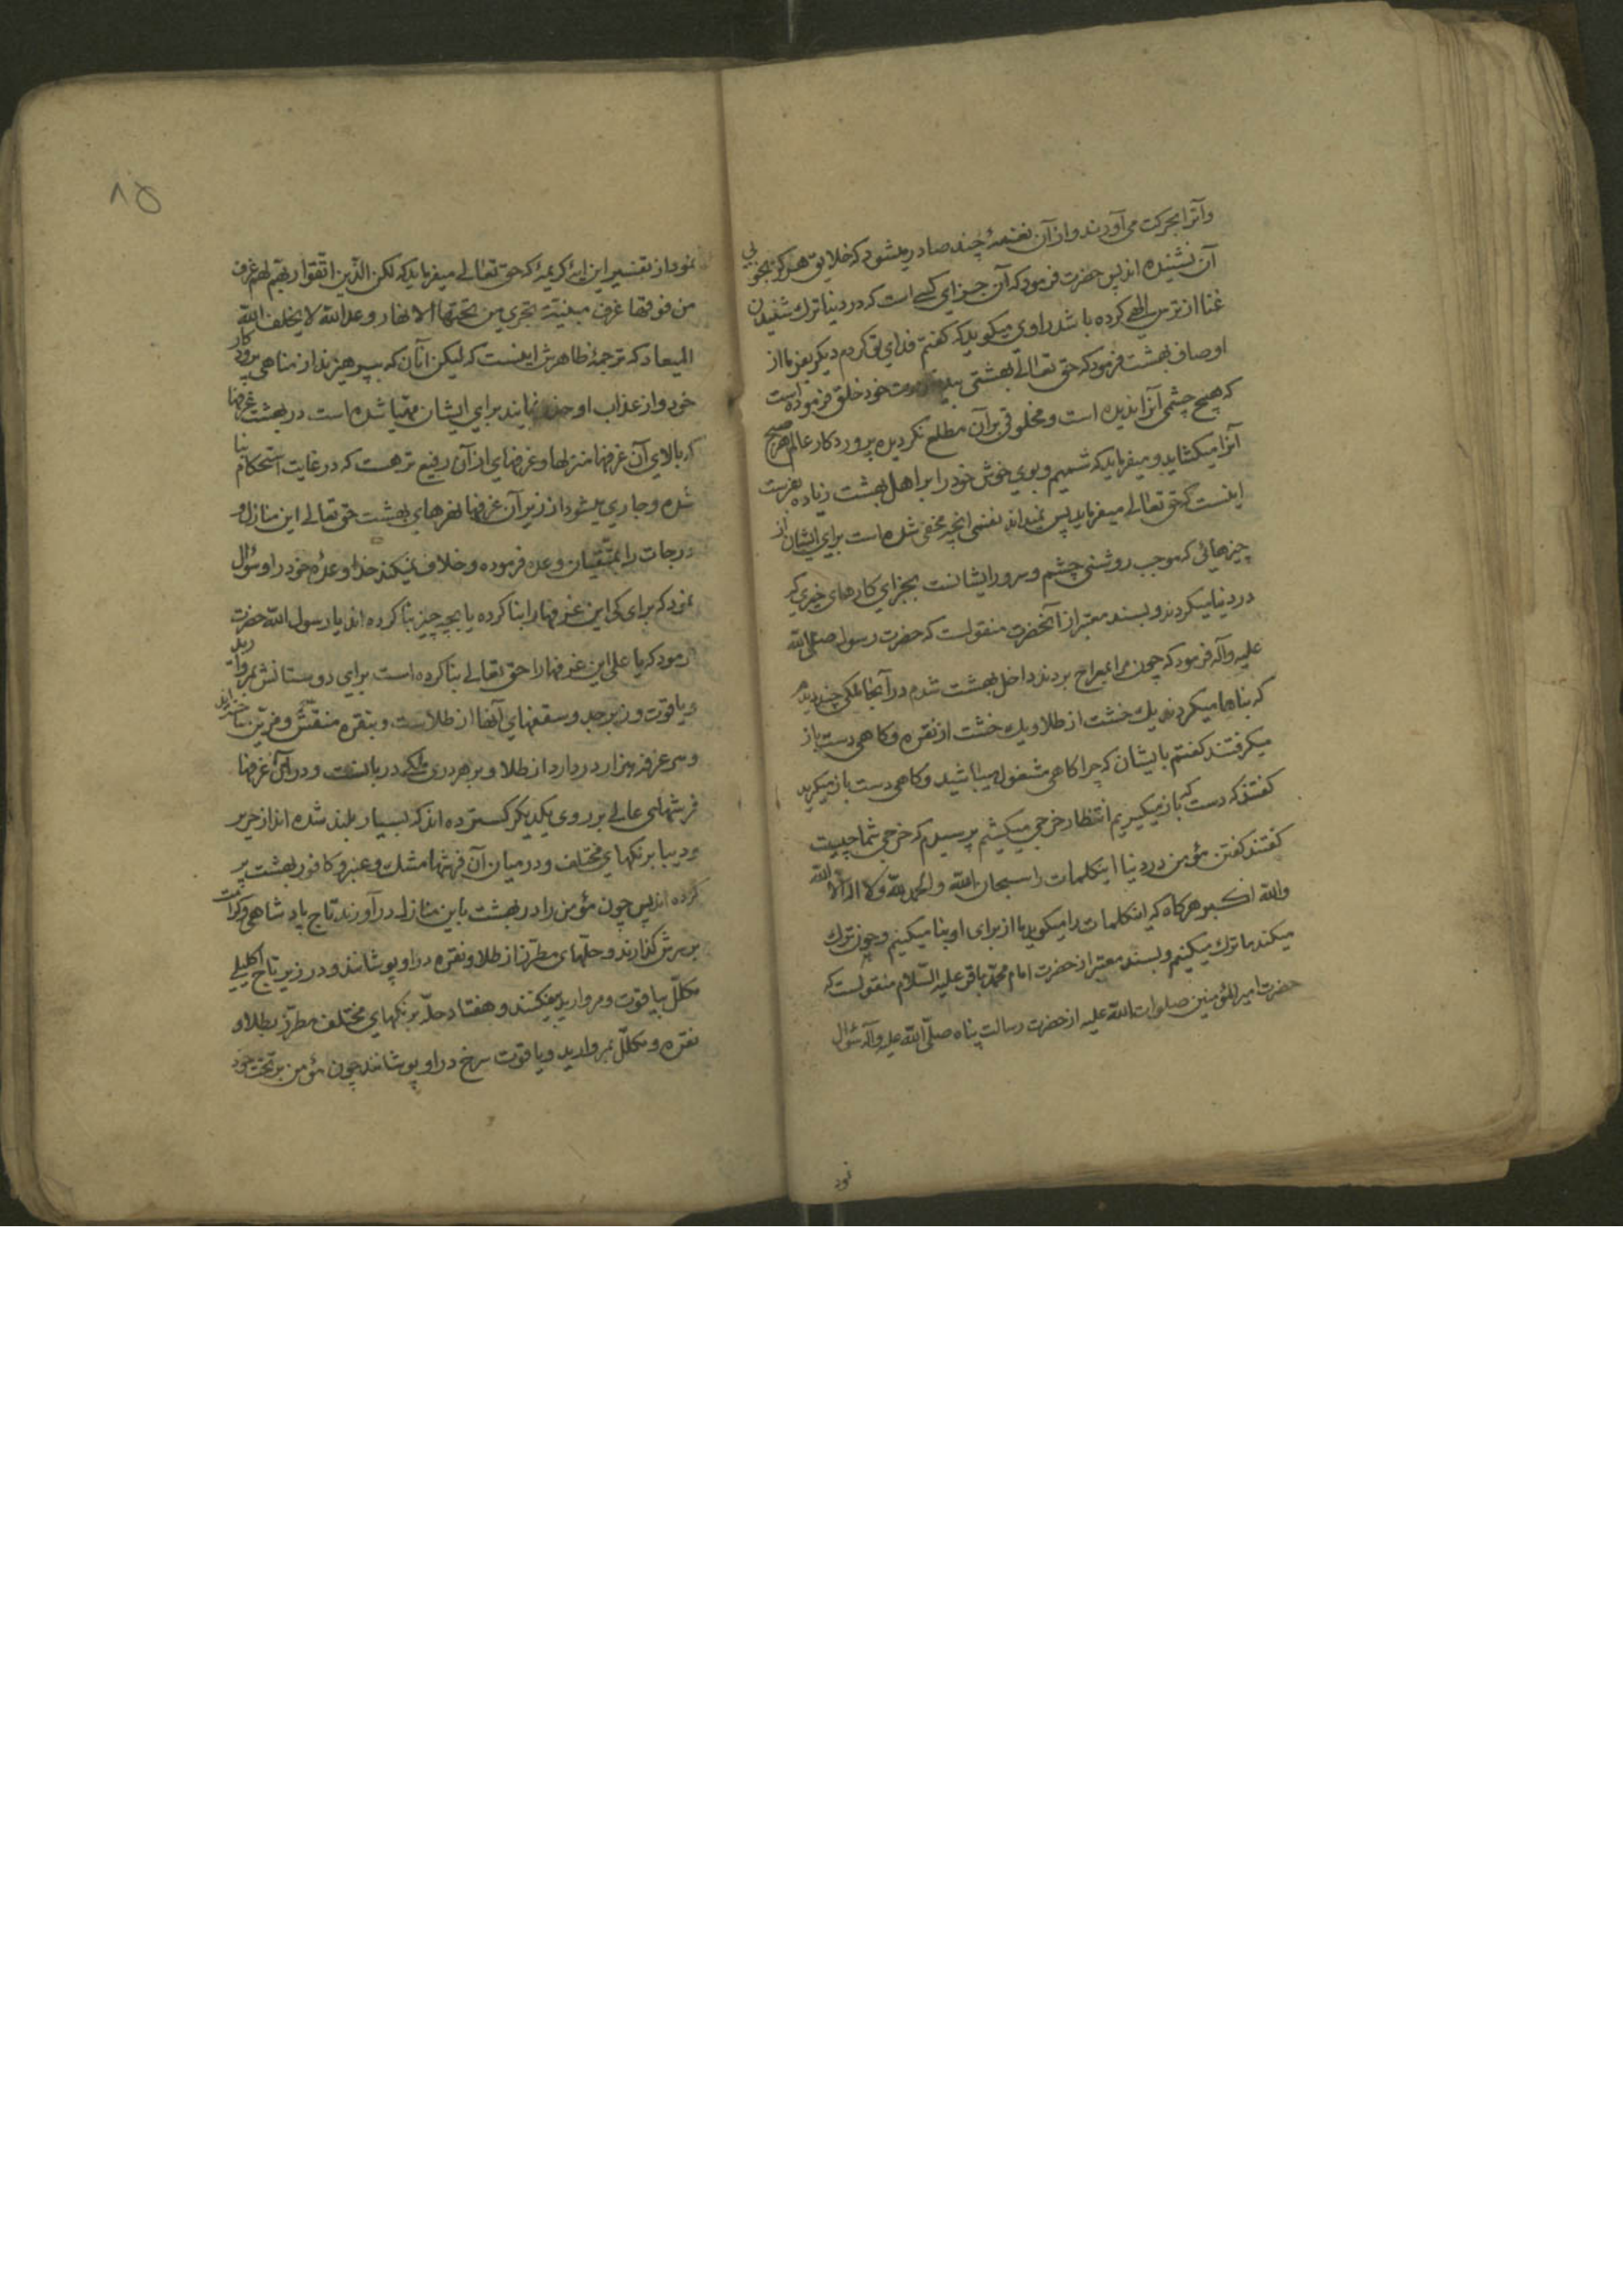 وآنرا بحرکت می آورند و از آن نغمهٔ چند صادر میشود که خلایق هرگز بخوبی
آن نشنیده اند پس حضرت فرمود که آن جزای کسی است که در دنیا ترک شنیدن
غنا از ترس الهی کرده باشد راوی میکوید که کفتم فدای تو کردم دیکر بفرما از
اوصاف بهشت فرمود که حق تعالی بهشتی بید قدرت خود خلق فرموده است
که هیچ چشمی آنرا ندیده است و مخلوقی بر آن مطلع نکردیده پروردکار عالم هر صبح
آنرا میکشاید و میفرماید که شمیم و بوی خوش خود را بر اهل بهشت زیاده بفرست
اینست که حق تعالی میفرماید پس نمیداند نفسی آنچه مخفی شده است برای ایشان از
چیزهائی که موجب روشنی چشم و سرور ایشانست بجزای کارهای خیری که
در دنیا میکردند و بسند معتبر از آنحضرت منقولست که حضرت رسول صلی الله
علیه وآله فرمود که چون مرا بمعراج بردند داخل بهشت شدم در آنجا ملکی چند دیدم
که بناها میکردند یک خشت از طلا و یک خشت از نقره و کاهی دست باز
میکرفتند کفتم بایشان که چرا کاهی مشغول میباشید و کاهی دست باز میکیرید
کفتند که دست که باز میکیریم انتظار خرجی میکشیم پرسیدم که خرجی شما چیست
کفتند کفتن مؤمن در دنیا اینکلمات را سبحان الله والحمد لله ولا اله الا الله
والله اکبر هرکاه که اینکلمات را میکوید ما از برای او بنا میکنیم و چون ترک
میکند ما ترک میکنیم و بسند معتبر از حضرت امام محمد باقر علیه السلام منقولست که
حضرت امیر المؤمنین صلوات الله علیه از حضرت رسالت پناه صلی الله علیه وآله سؤال
نمود
۸۵
نمود از تفسیر این ایهٔ کریمهٔ که حق تعالی میفرماید که لکن الذین اتقوا ربهم لهم غرف
من فوقها غرف مبنیة تجری من تحتها الانهار وعد الله لا یخلف الله
المیعاد که ترجمهٔ ظاهرش اینست که لیکن آنان که بپرهیزند از مناهی پروردکار
خود و از عذاب او حذر نمایند برای ایشان مهیا شده است در بهشت غرفها
که بالای آن غرفها منزلها و غرفهای از آن رفیع تر هست که در غایت استحکام بنا
شده و جاری میشود از زیر آن غرفها نهرهای بهشت حق تعالی این منازل و
درجات را بمتقیان وعده فرموده و خلاف نمیکند خدا وعدهٔ خود را و سؤال
نمود که برای کی این غرفها را بنا کرده یا بچه چیز بنا کرده اند یا رسول الله حضرت
فرمود که یا علی این غرفها را حق تعالی بنا کرده است برای دوستانش بمروارید
و یاقوت و زبرجد و سقفهای آنها از طلاست و بنقره منقش و مزین ساخته اند
و هر غرفه هزار در دارد از طلا و بر هر دری ملکی دربانست و در آن غرفها
فرشهای عالی بر روی یکدیکر کسترده اند که بسیار بلند شده اند از حریر
و دیبا برنکهای مختلف و در میان آن فرشها مشک و عنبر و کافور بهشت پر
کرده اند پس چون مؤمن را در بهشت باین منازل در آورند تاج پادشاهی و کرامت
بر سرش کذارند و حلهای مطرز از طلا و نقره در او پوشانند و در زیر تاج اکلیلی
مکلل بیاقوت و مروارید بیفکنند و هفتاد حله برنکهای مختلف مطرز بطلا و
نقره و مکلل بمروارید و یاقوت سرخ در او پوشانند چون مؤمن بر تخت خود